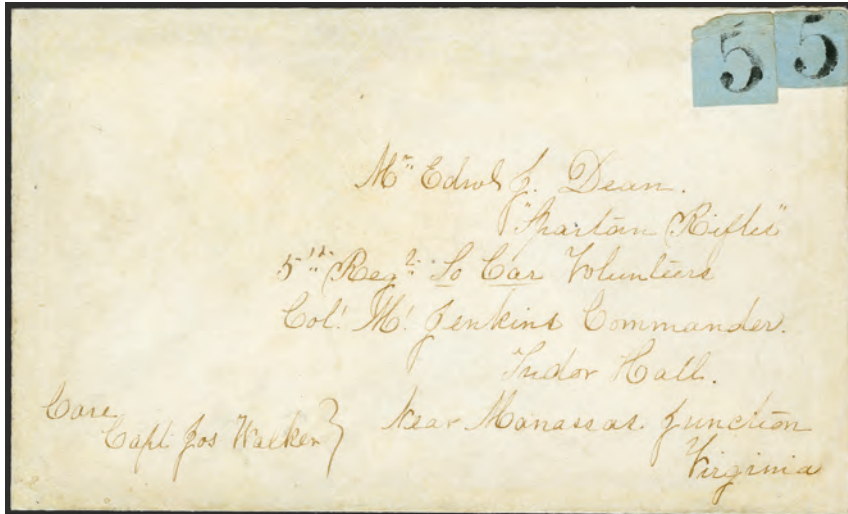 5 5
Mr. Edwd J. Dean.
"Spartan Rifles"
5th Regt. So Car Volunteers
Col. M. Jenkins Commander.
Tudor Hall.
Near Manassas Junction
Virginia
Care
Capt. Jos Walker }